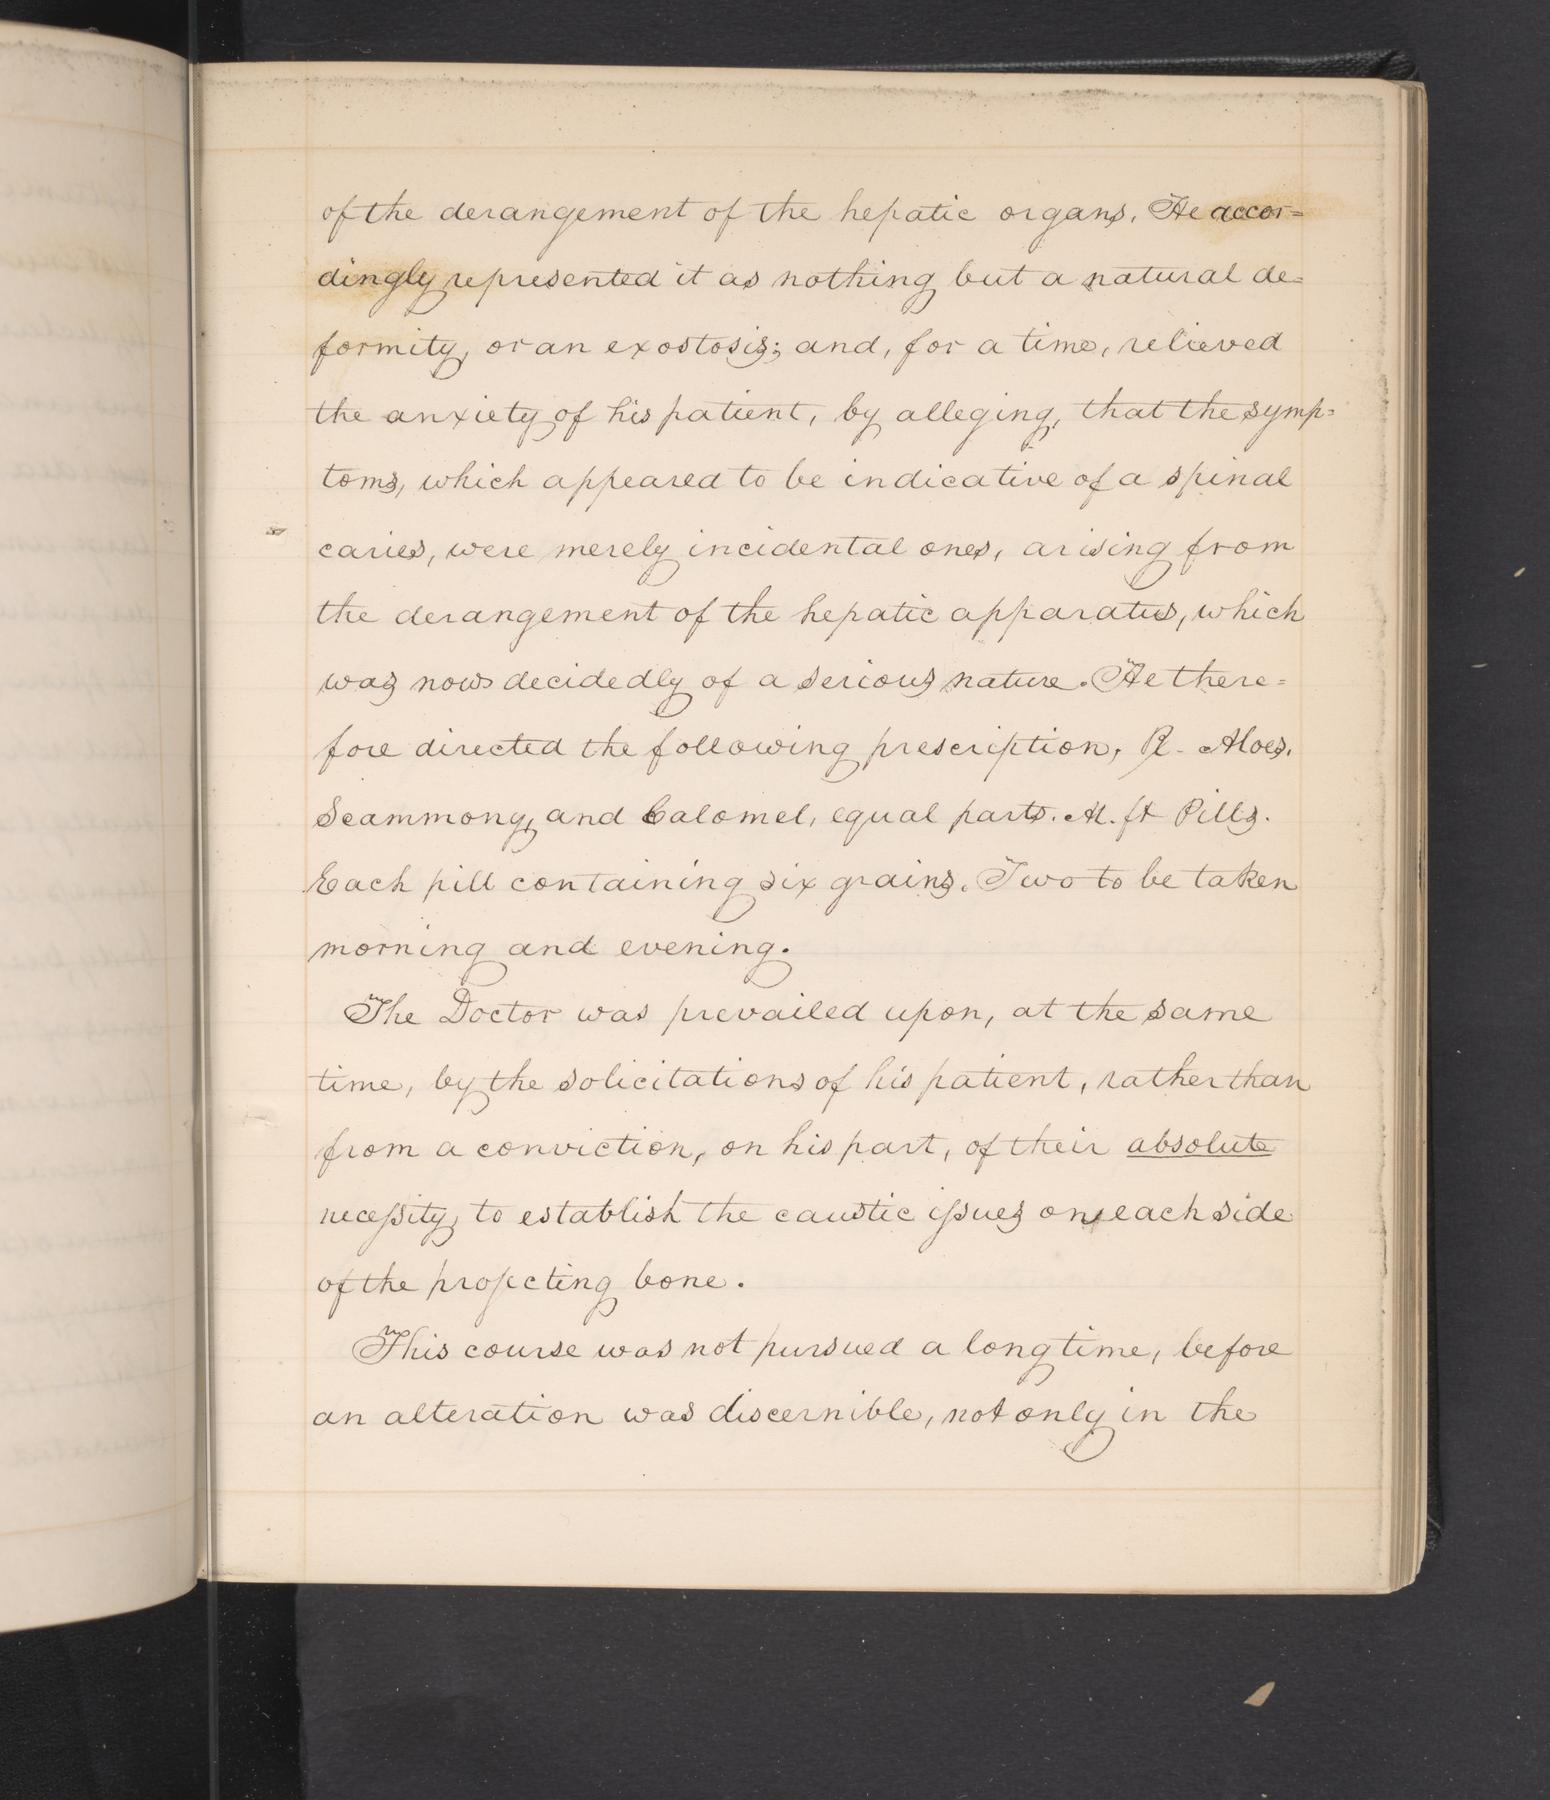 of the derangement of the hepatic organs. He accor=
dingly represented it as nothing but a natural de=
formity, or an exostosis; and, for a time, relieved
the anxiety of his patient, by alleging, that the symp=
toms, which appeared to be indicative of a spinal
caries, were merely incidental ones, arising from
the derangement of the hepatic apparatus, which
was now decidedly of a serious nature. He there=
fore directed the following prescription, ℞. Aloes.
Scammony, and Calomel, equal parts. M. ft Pills.
Each pill containing six grains. Two to be taken
morning and evening.
The Doctor was prevailed upon, at the same
time, by the solicitations of his patient, rather than
from a conviction, on his part, of their absolute
neceſsity, to establish the caustic iſsues on each side
of the projecting bone.
This course was not pursued a long time, before
an alteration was discernible, not only in the